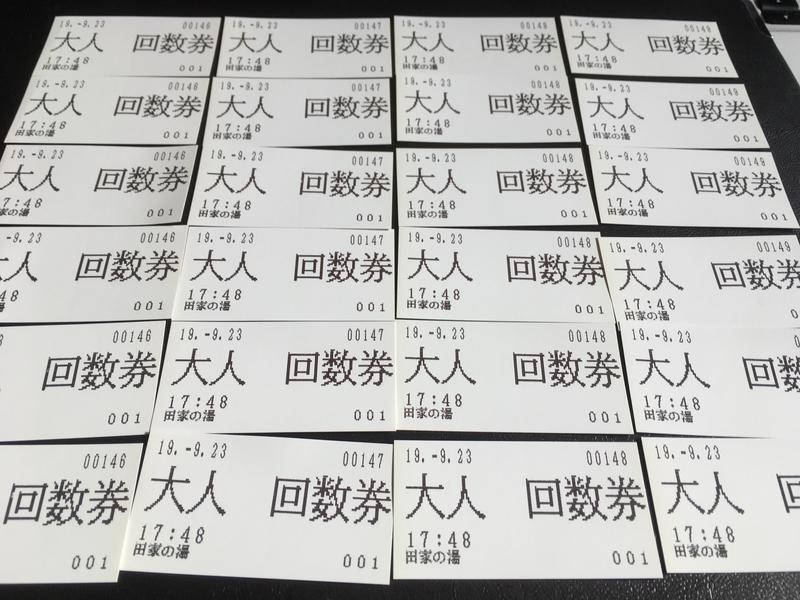 19.-9.23 00146
大人 回数券
17:48
田家の湯 001
19.-9.23 00147
大人 回数券
17:48
田家の湯 001
19.-9.23 00148
大人 回数券
17:48
田家の湯 001
19.-9.23 00149
大人 回数券
17:48
田家の湯 001
19.-9.23 00146
大人 回数券
17:48
田家の湯 001
19.-9.23 00147
大人 回数券
17:48
田家の湯 001
19.-9.23 00148
大人 回数券
17:48
田家の湯 001
19.-9.23 00149
大人 回数券
17:48
田家の湯 001
19.-9.23 00146
大人 回数券
17:48
家の湯 001
19.-9.23 00147
大人 回数券
17:48
田家の湯 001
19.-9.23 00148
大人 回数券
17:48
田家の湯 001
19.-9.23 00149
大人 回数券
17:48
田家の湯 001
-9.23 00146
人 回数券
48
湯 001
19.-9.23 00147
大人 回数券
17:48
田家の湯 001
19.-9.23 00148
大人 回数券
17:48
田家の湯 001
19.-9.23 00149
大人 回数券
17:48
田家の湯
00146
回数券
001
19.-9.23 00147
大人 回数券
17:48
田家の湯 001
19.-9.23 00148
大人 回数券
17:48
田家の湯 001
19.-9.23
大人 回数
17:48
田家の湯
00146
回数券
001
19.-9.23 00147
大人 回数券
17:48
田家の湯 001
19.-9.23 00148
大人 回数券
17:48
田家の湯 001
19.-9.23
大人
17:48
田家の湯